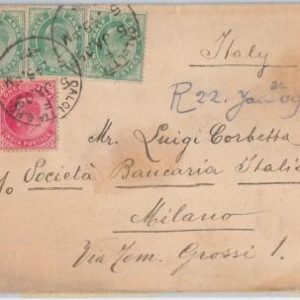 Italy
CALCUTTA
R 22. Jan er 09
Mr. Luigi Corbetta
c/o Società
Bancaria Italia
Milano
Via Tom. Grossi 1.